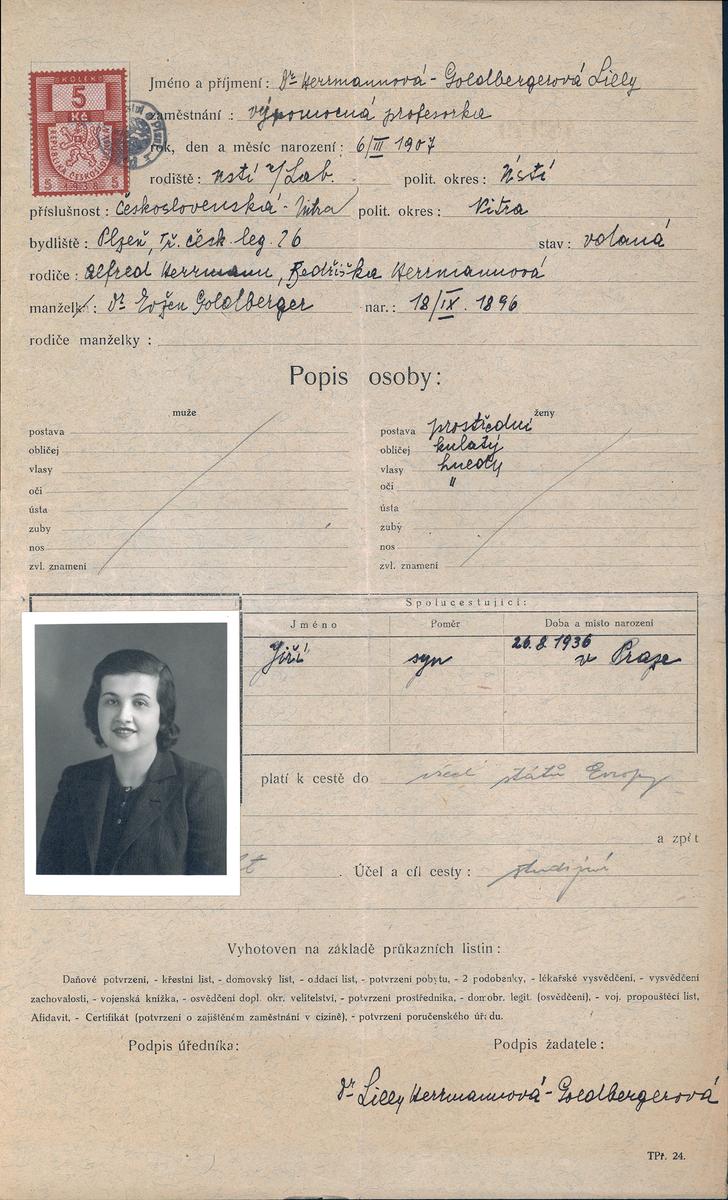 KOLEK
5
Kč
REPUBLIKA ČESKOSLOVENSKÁ
5 1938 5
Jméno a příjmení : Dr Herrmannová - Goldbergerová Lilly
zaměstnání : výpomocná profesorka
rok, den a měsíc narození : 6/III 1907
rodiště : Ústí n/Lab. polit. okres : Ústí
příslušnost : Československá - Nitra polit. okres : Nitra
bydliště : Plzeň, Tř. česk. leg. 26 stav : vdaná
rodiče : Alfred Herrmann, Bedřiška Herrmannová
manžel : Dr Evžen Goldberger nar.: 18/IX. 1896
rodiče manželky :
Popis osoby:
muže ženy
postava postava prostřední
obličej obličej kulatý
vlasy vlasy hnedý
oči oči "
ústa ústa
zuby zuby
nos nos
zvl. znamení zvl. znamení
Spolucestující:
Jméno Poměr Doba a místo narození
Jiří syn 26.8.1936
v Praze
platí k cestě do všech států Evropy
a zpět
Účel a cíl cesty : studijní
Vyhotoven na základě průkazních listin :
Daňové potvrzení, - křestní list, - domovský list, - oddací list, - potvrzení pobytu, - 2 podobenky, - lékařské vysvědčení, - vysvědčení
zachovalosti, - vojenská knížka, - osvědčení dopl. okr. velitelství, - potvrzení prostředníka, - dom.obr. legit. (osvědčení), - voj. propouštěcí list,
Afidavit, - Certifikát (potvrzení o zajištěném zaměstnání v cizině), - potvrzení poručenského úřadu.
Podpis úředníka: Podpis žadatele :
Dr Lilly Herrmannová - Goldbergerová
TPř. 24.